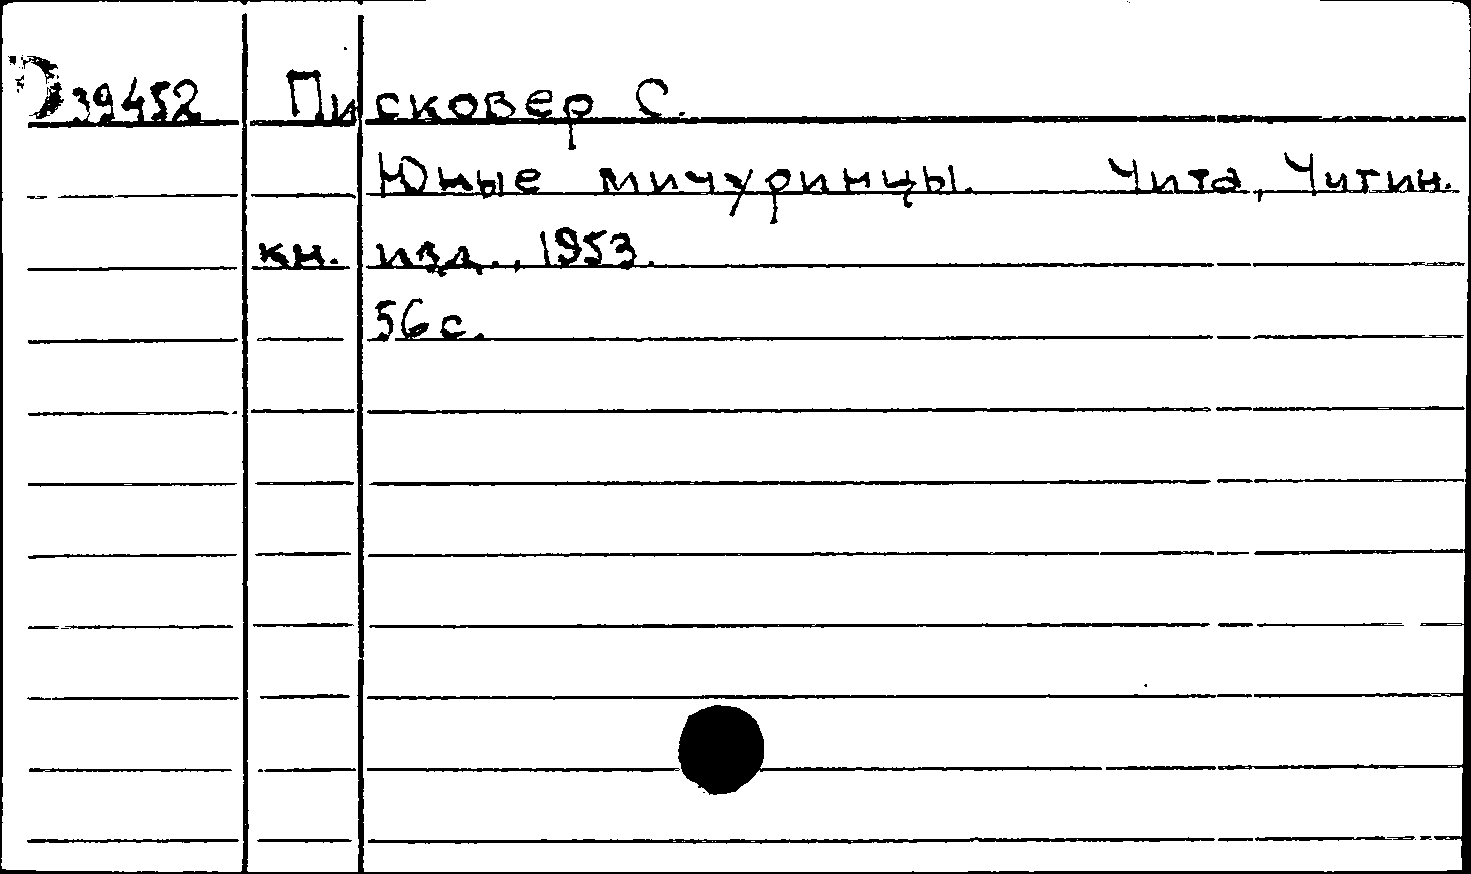 D39452 Писковер С.
Юные мичуринцы. Чита, Читин.
кн. изд., 1953.
56 с.